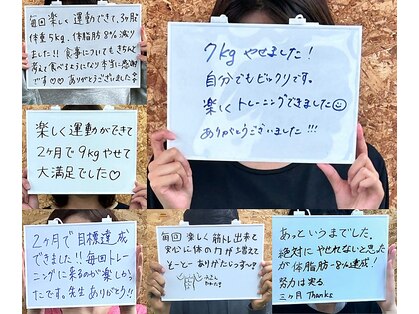 毎回楽しく運動できて、3ヶ月
体重5kg、体脂肪8%減り
ました!! 食事についてもきちんと
考え食べるようになり本当に感謝
です♡♡ ありがとうございました
7kgやせました!
自分でもビックリです。
楽しくトレーニングできました☺
ありがとうございました!!!
楽しく運動ができて
2ヶ月で9kgやせて
大満足でした♡
2ヶ月で目標達成
できました!! 毎回トレー
ニングに来るのが楽しかっ
たです。先生ありがとう!!
毎回楽しく筋トレ出来て
安心に体の力が増えて
そーとー ありがたいっす〜?
あっというまでした。
絶対にやせれないと思った
が体脂肪-8%達成!
努力は実る
三ヶ月 Thanks